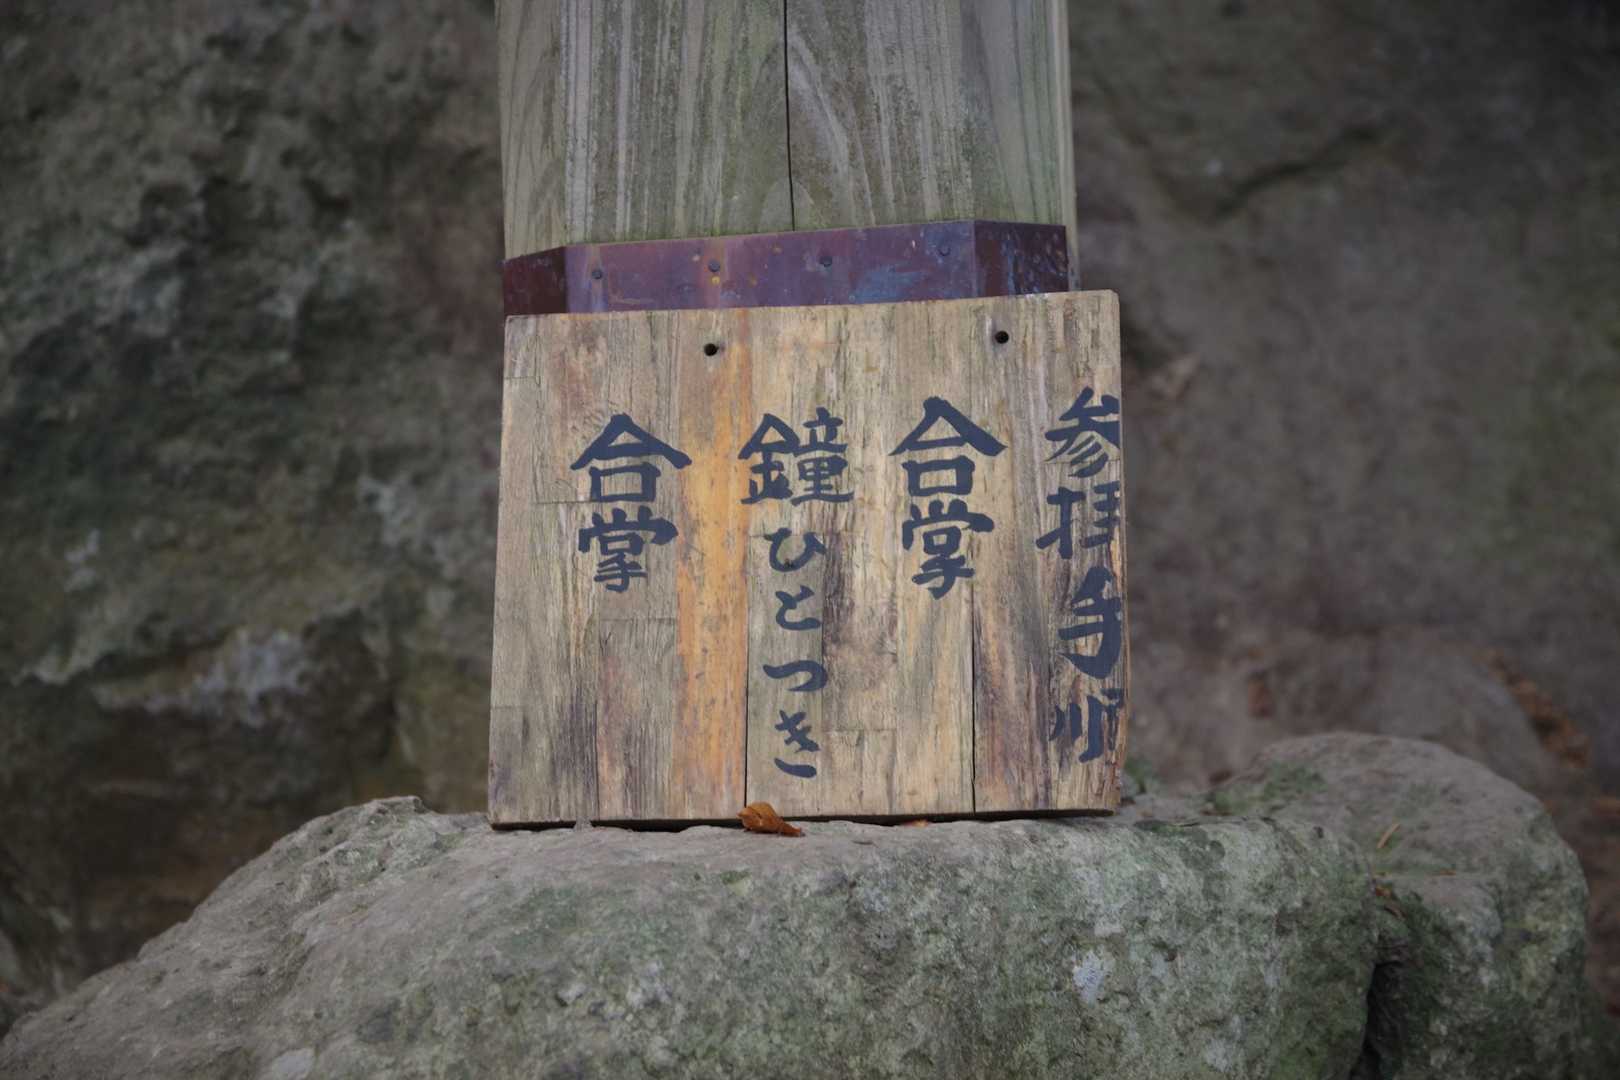 参拝手順
合掌
鐘ひとつき
合掌